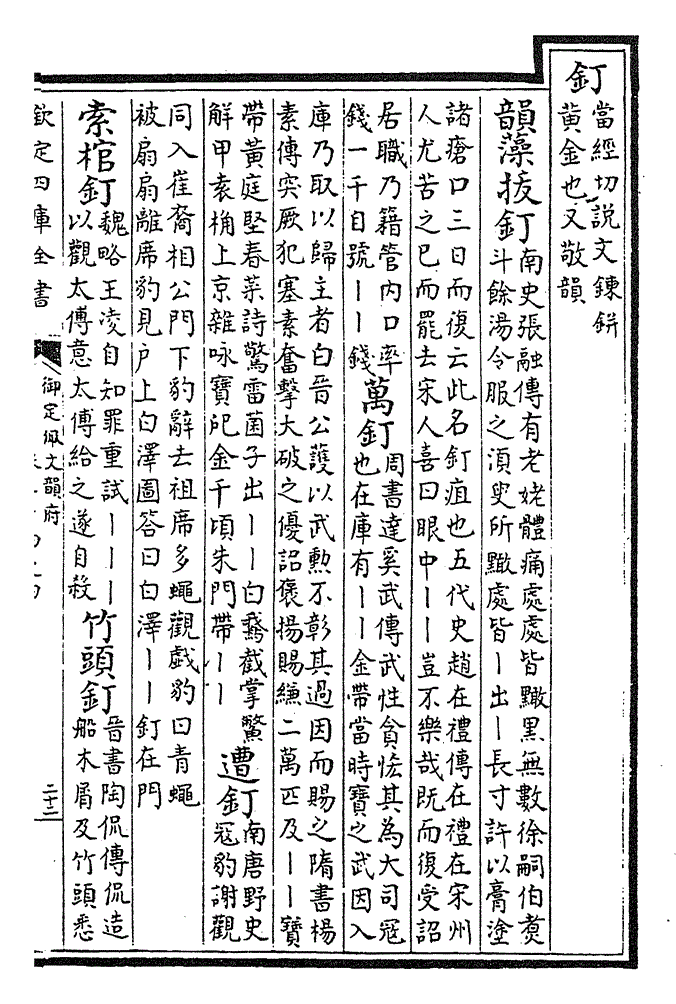 釘 當經切說文鍊鉼
黄金也又敬韻
韻藻拔釘 南史張融傳有老姥體痛處處皆黵黒無數徐嗣伯煑
斗餘湯令服之湏臾所黵處皆丨出丨長寸許以膏塗
諸瘡口三日而復云此名釘疽也五代史趙在禮傳在禮在宋州
人尤苦之已而罷去宋人喜曰眼中丨丨豈不樂哉既而復受詔
居職乃籍管内口率
錢一千自號丨丨錢
萬釘 周書達奚武傳武性貪恡其為大司冦
也在庫有丨丨金帶當時寶之武因入
庫乃取以歸主者白晉公護以武勲不彰其過因而賜之隋書楊
素傳突厥犯塞素奮擊大破之優詔褒揚賜縑二萬匹及丨丨寶
帶黄庭堅春菜詩驚雷菌子出丨丨白鵞截掌鱉
解甲袁桷上京雜咏寶戺金千頃朱門帶丨丨
遭釘 南唐野史
冦豹謝觀
同入崔裔相公門下豹辭去祖席多蠅觀戯豹曰青蠅
被扇扇離席豹見户上白澤圖答曰白澤丨丨釘在門
索棺釘 魏略王凌自知罪重試丨丨丨
以觀太傅意太傅給之遂自殺
竹頭釘 晉書陶侃傳侃造
船木屑及竹頭悉
欽定四庫全書
御定佩文韻府
二十二